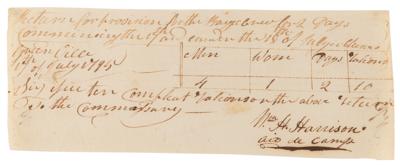 Return for provision for the Barge Crew for 2 Days
Commencing the 17th and ends the 18th of July
Green Ville
17th of July 1795
Men Wom Days Rations
4 1 2 10
Sir Issue ten compleat Rations on the above return
To the Commissary
Wm H. Harrison
aid de camp